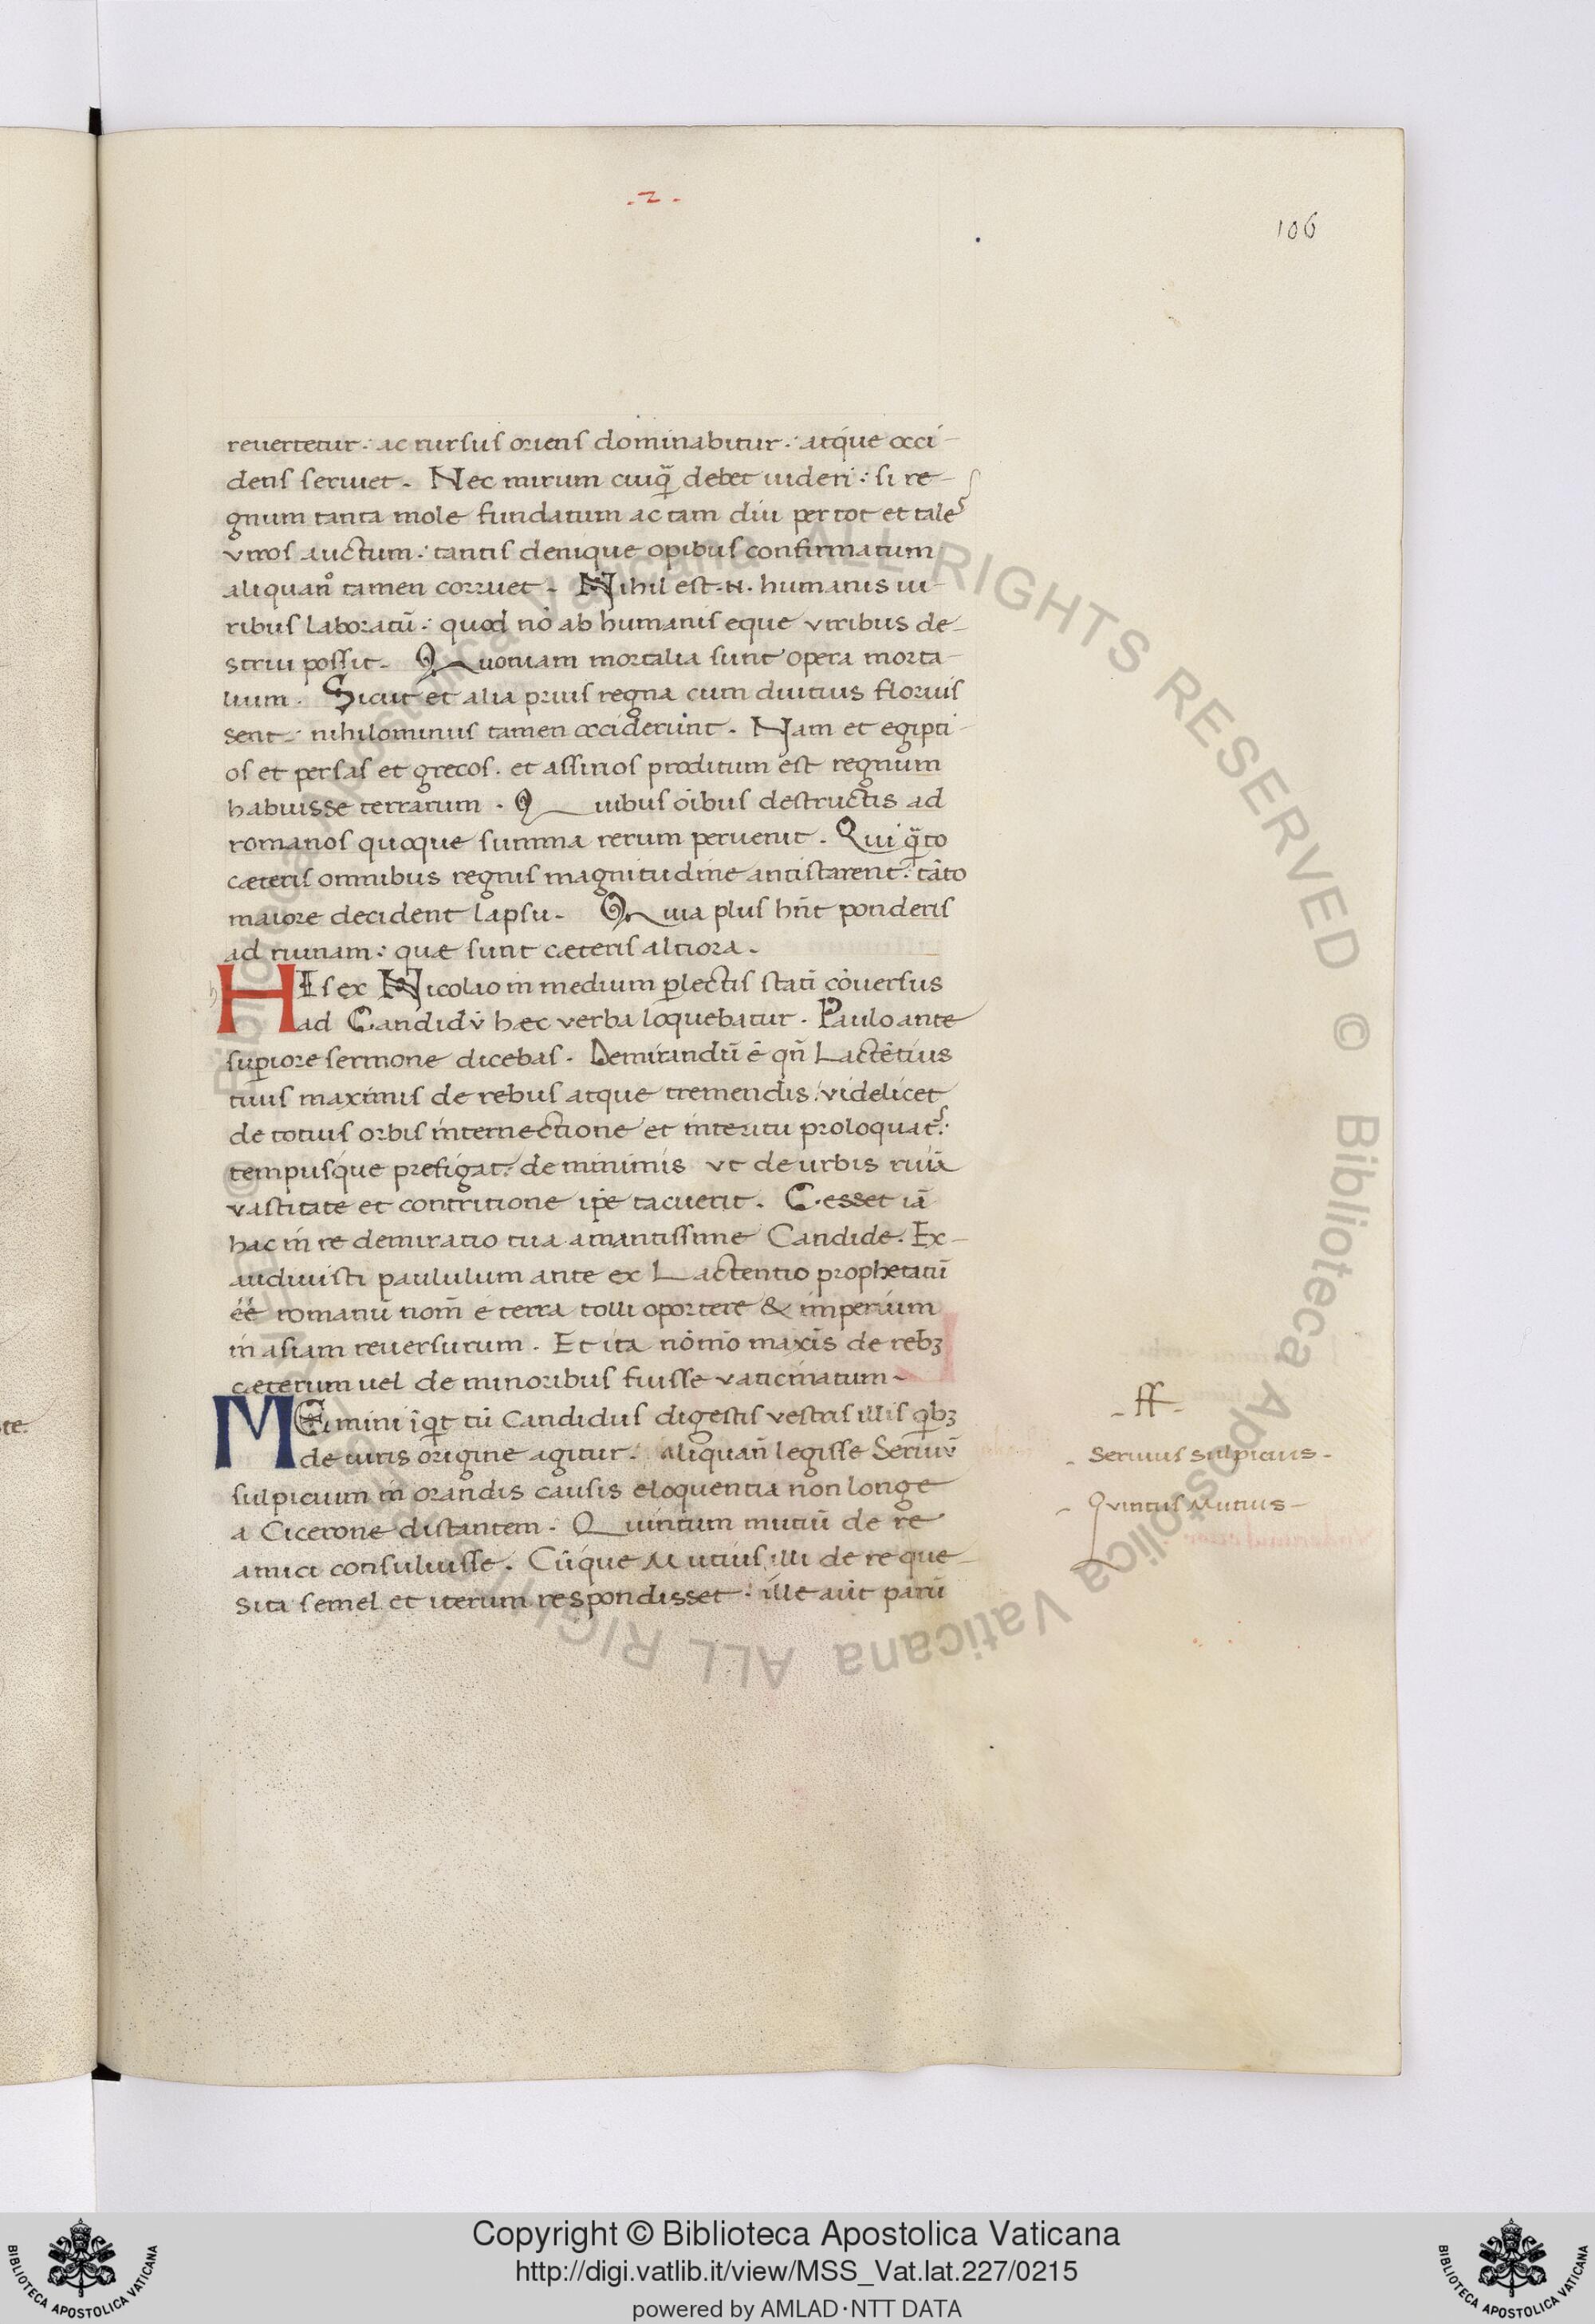 .2.
106
reuertetur. ac rursus oriens dominabitur. atque occi-
dens seruiet. Nec mirum cuiq̈ debet uideri: si re-
gnum tanta mole fundatum ac tam diu per tot et tales
viros auctum: tantis denique opibus confirmatum
aliquan̊ tamen corruet. Nihil est .N. humanis ui-
ribus laboratū: quod nō ab humanis eque viribus de-
strui possit. Quoniam mortalia sunt opera morta-
lium. Sicut et alia prius regna cum diutius floruis
sent: nihilominus tamen occiderunt. Nam et egipti-
os et persas et grecos. et assirios proditum est regnum
habuisse terrarum. Quibus oībus destructis ad
romanos quoque summa rerum peruenit. Qui q̈to
cæteris omnibus regnis magnitudine antistarent: tāto
maiore decident lapsu. Quia plus hn̄t ponderis
ad ruinam: quæ sunt cæteris altiora.
HIs ex Nicolao in medium plectis statī cōuersus
ad Candidū hæc verba loquebatur. Paulo ante
supiore sermone dicebas. Demirandū ē qn̄ Lactētius
tuus maximis de rebus atque tremendis: videlicet
de totius orbis internectione et interitu proloquat᷒:
tempusque prefigat: de minimis vt de urbis ruīa
vastitate et contritione ip̄e tacuerit. Cesset iā
hac in re demiratio tua amantissime Candide. Ex-
audiuisti paululum ante ex Lactentio prophetatū
ēe romanū nom̄ e terra tolli oportere & imperium
in asiam reuersurum. Et ita nōmō maxīs de rebꝫ
cæterum uel de minoribus fuisse vaticinatum.
MEmini īqt tū Candidus digestis vestris illis qbꝫ
de iuris origine agitur. Aliquan̄ legisse Seruiū
sulpicium in orandis causis eloquentia non longe
a Cicerone distantem. Quintum mutiū de re
amici consuluisse. Cūque Mutius illi de re que-
sita semel et iterum respondisset: ille aūt parū
- ff -
- Seruius Sulpicius -
- Quintus Mutius -
te:
Copyright © Biblioteca Apostolica Vaticana
http://digi.vatlib.it/view/MSS_Vat.lat.227/0215
powered by AMLAD·NTT DATA
BIBLIOTECA APOSTOLICA VATICANA
BIBLIOTECA APOSTOLICA VATICANA
© Biblioteca Apostolica Vaticana ALL RIGHTS RESERVED © Biblioteca Apostolica Vaticana ALL RIGHTS RESERVED